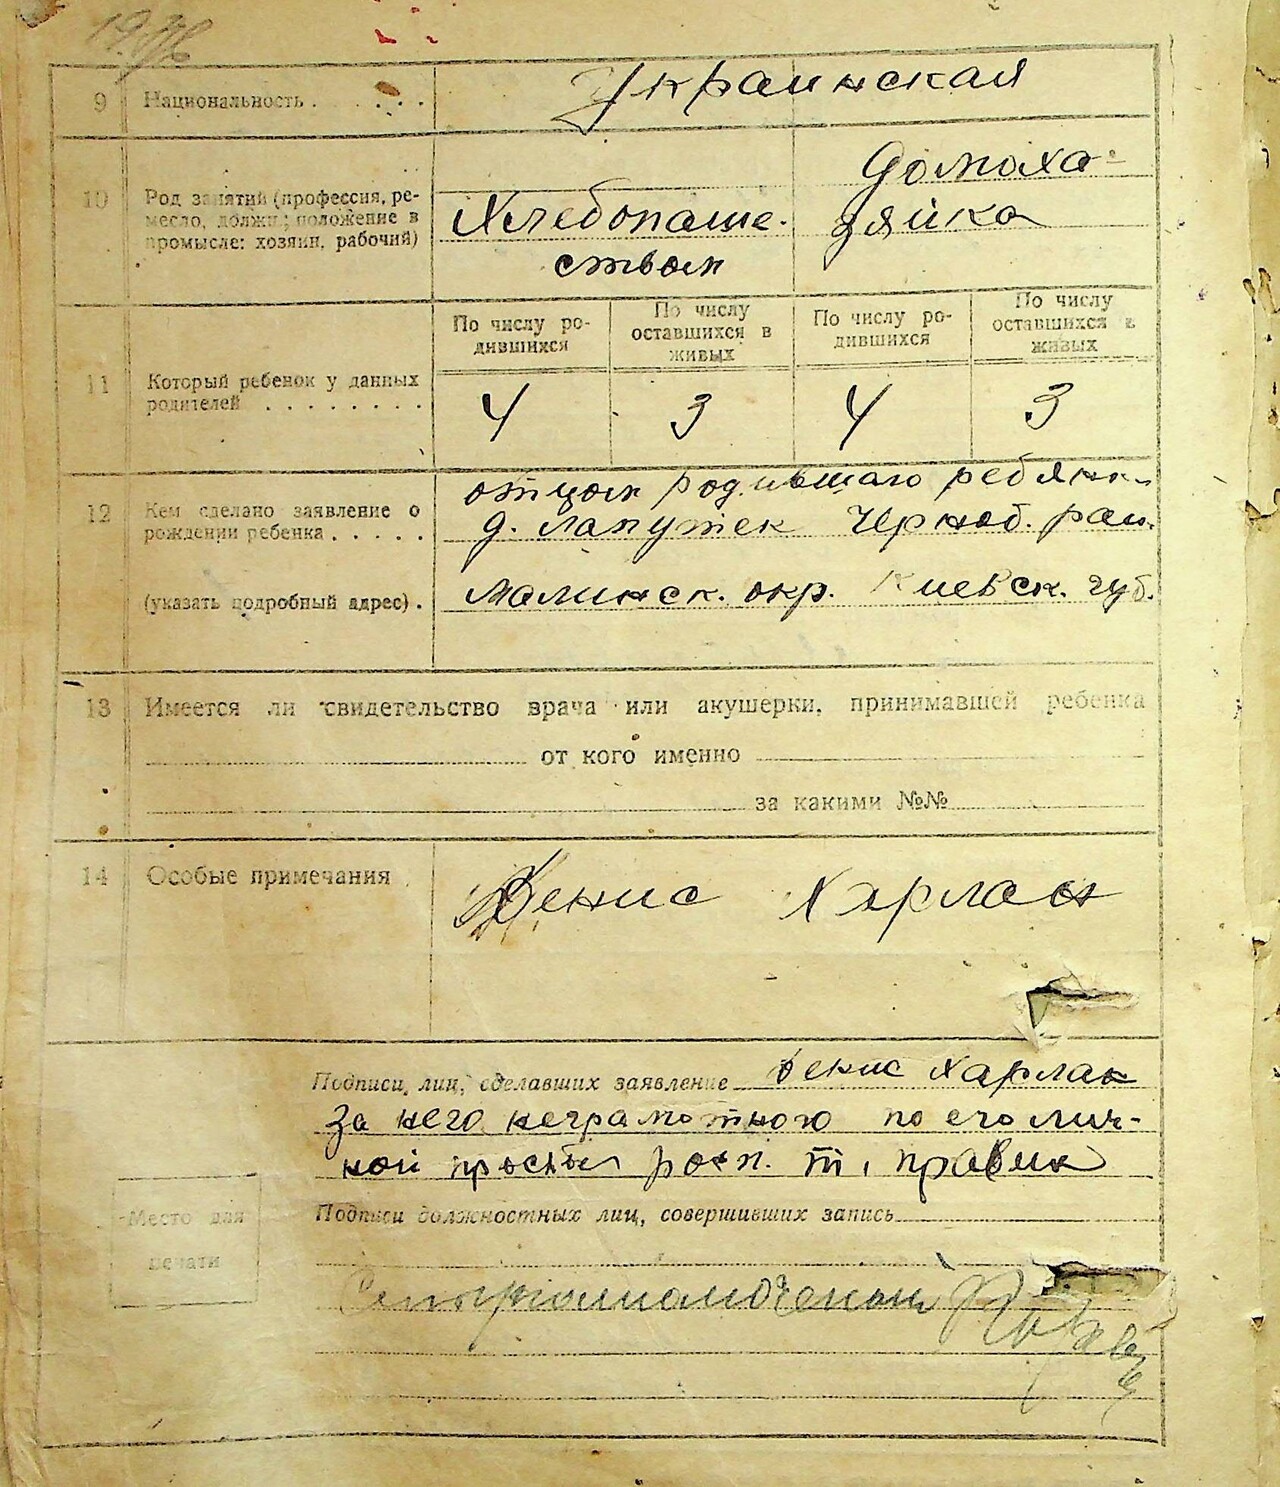 9 Национальность . . . . . . Украинская
10 Род занятий (профессия, ре-
месло, должн; положение в
промысле: хозяин, рабочий)
Хлебопаше-
ством
Домоха-
зяйка
По числу ро-
дившихся
По числу
оставшихся в
живых
По числу ро-
дившихся
По числу
оставшихся в
живых
11 Который ребенок у данных
родителей . . . . . . . .
4 3 4 3
12 Кем сделано заявление о
рождении ребенка . . . . .
(указать подробный адрес) .
отцом родившаго ребянк
д. Лапутек Черноб. раи.
Малинск. окр. Киевск. губ.
13 Имеется ли свидетельство врача или акушерки, принимавшей ребенка
от кого именно
за какими №№
14 Особые примечания
Денис Харлан
Подписи лиц, сделавших заявление Денис Харлан
За него неграмотного по его лич-
ной просьбы росп. т. правик
Подписи должностных лиц, совершивших запись
Место для
печати